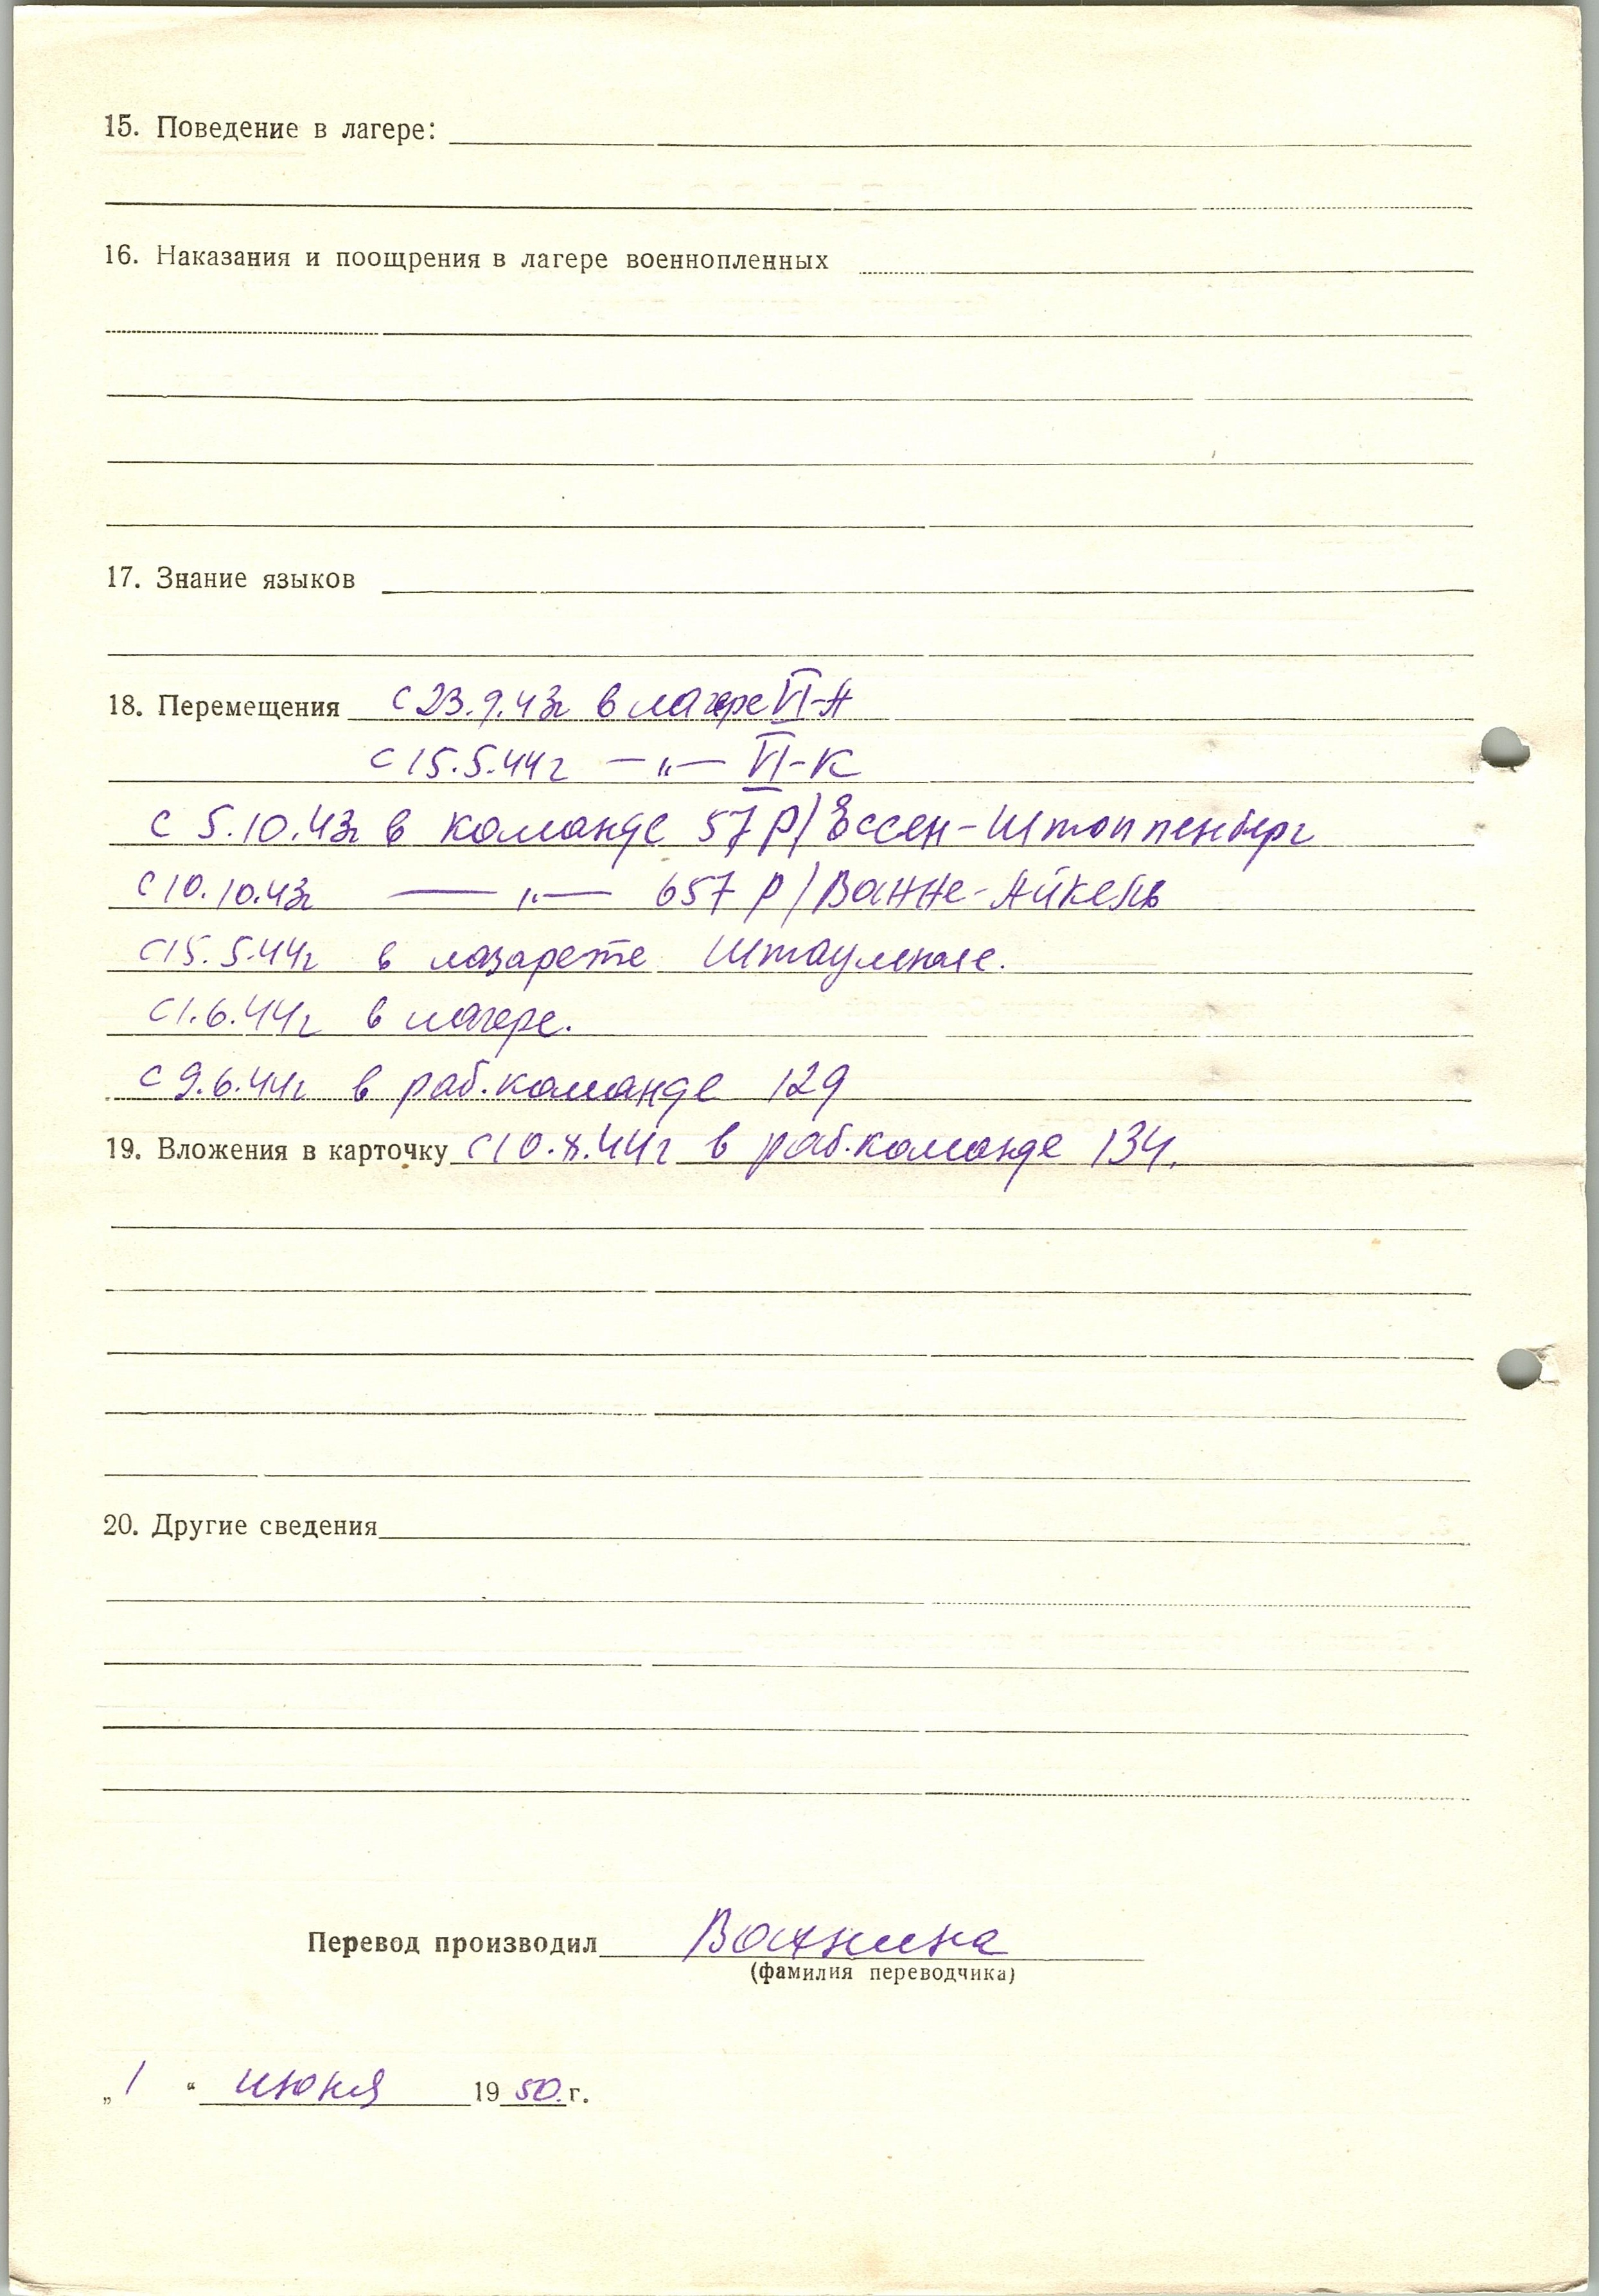 15. Поведение в лагере:
16. Наказания и поощрения в лагере военнопленных
17. Знание языков
18. Перемещения с 23.9.43г в лагере VI-А
с 15.5.44г —„— VI-К
с 5.10.43г в команде 57 р/Ессен-Штоппенберг
с 10.10.43г —„— 657 р/Ванне-Айкель
с 15.5.44г в лазарете
с 1.6.44г в лагере.
с 9.6.44г в раб.команде 129
19. Вложения в карточку с 10.X.44г в раб.команде 134.
20. Другие сведения
Перевод производил Ванина
(фамилия переводчика)
„1“ июня 1950.г.